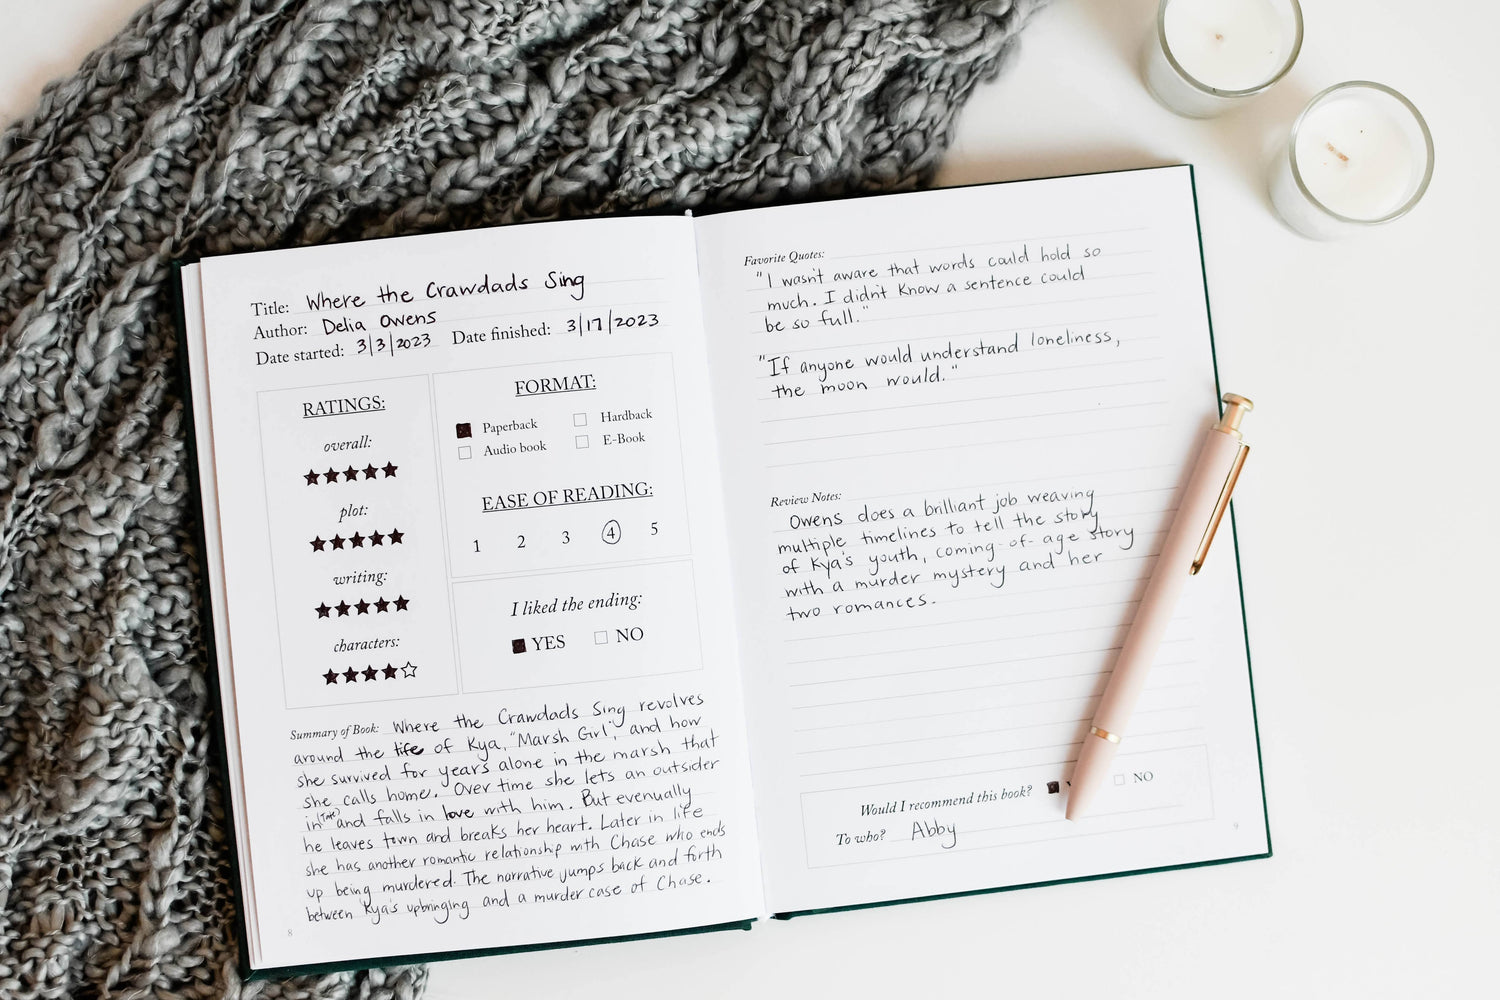 Title: Where the Crawdads Sing
Author: Delia Owens
Date started: 3/3/2023 Date finished: 3/17/2023
RATINGS:
overall:
plot:
writing:
characters:
FORMAT:
Paperback Hardback
Audio book E-Book
EASE OF READING:
1 2 3 4 5
I liked the ending:
YES NO
Summary of Book: Where the Crawdads Sing revolves
around the life of Kya, "Marsh Girl", and how
she survived for years alone in the marsh that
she calls home. Over time she lets an outsider
in (Tate) and falls in love with him. But evenually
he leaves town and breaks her heart. Later in life
she has another romantic relationship with Chase who ends
up being murdered. The narrative jumps back and forth
between Kya's upbringing and a murder case of Chase.
8
Favorite Quotes:
"I wasn't aware that words could hold so
much. I didn't know a sentence could
be so full."
"If anyone would understand loneliness,
the moon would."
Review Notes:
Owens does a brilliant job weaving
multiple timelines to tell the story
of Kya's youth, coming-of-age story
with a murder mystery and her
two romances.
Would I recommend this book? NO
To who? Abby
9